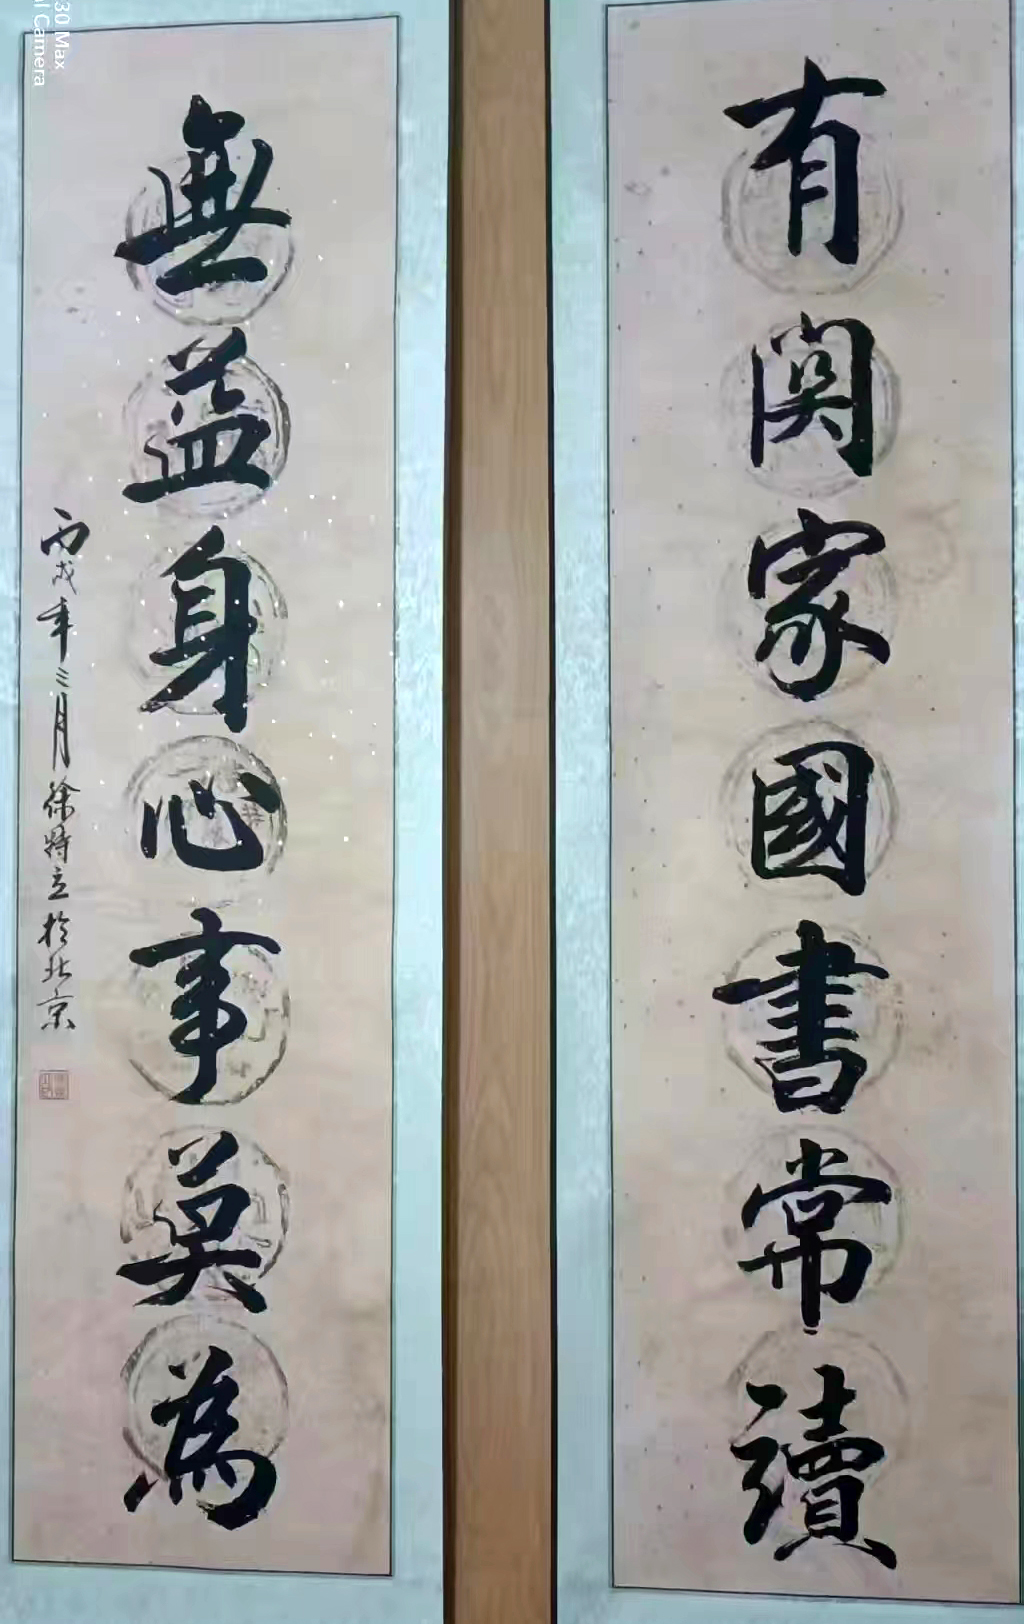 有関家國書常讀
無益身心事莫為
丙戌年三月徐特立於北京
30 Max
al Camera